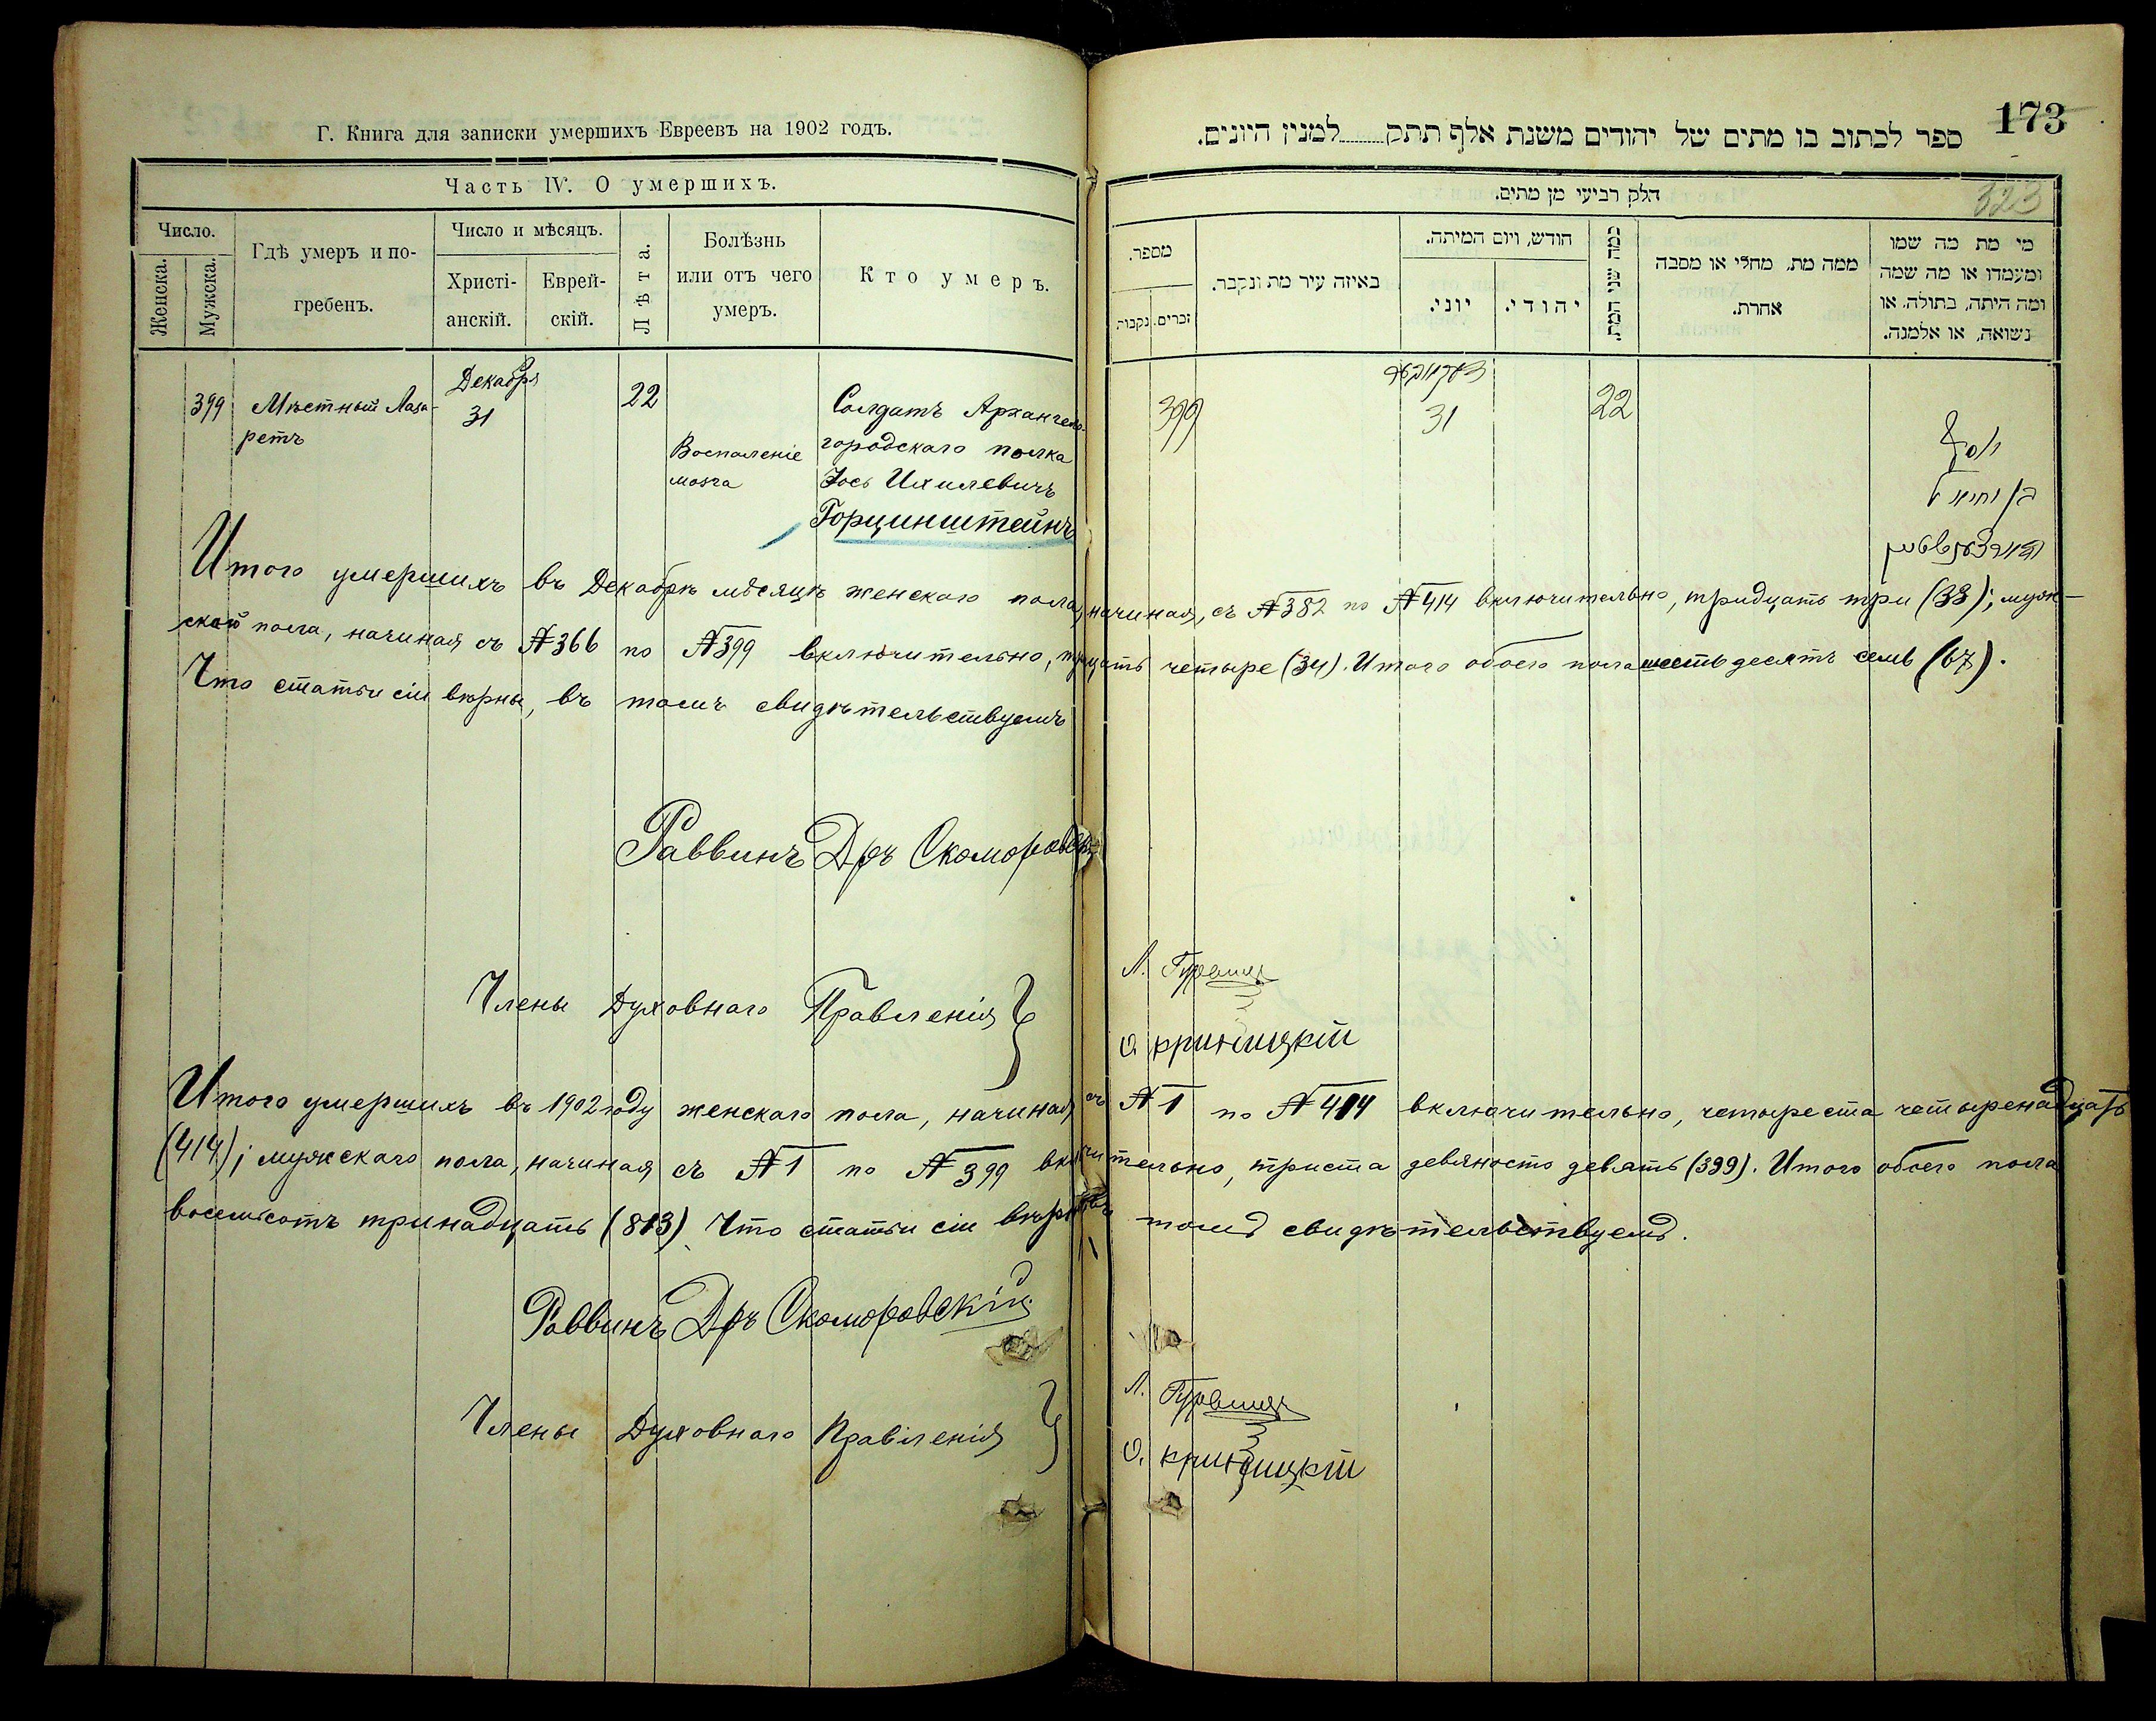 Г. Книга для записки умершихъ Евреевъ на 1902 годъ.
Часть IV. О умершихъ.
Число.
Женска.
Мужска.
Гдѣ умеръ и по-
гребенъ.
Число и мѣсяцъ.
Христі-
анскій.
Еврей-
скій.
Лѣта.
Болѣзнь
или отъ чего
умеръ.
Кто умеръ.
399
Мѣстный Лаза-
ретъ
Декабря
31
22
Воспаленіе
мозга
Солдатъ Архангело-
городскаго полка
Іось Ихилевичъ
Горцинштейнъ
173
ספר לכתוב בו מתים של יהודים משנת אלף תתק למנין היונים.
323
חלק רביעי מן מתים.
מספר.
זכרים.
נקבות
באיזה עיר מת ונקבר.
חודש, ויום המיתה.
יוני.
יהודי.
כמה שני המת.
ממה מת, מחלי או מסבה
אחרת.
מי מת מה שמו
ומעמדו או מה שמה
ומה היתה, בתולה, או
נשואה, או אלמנה.
399
דעקאבער
31
22
יוסף
בן יחיאל
Итого умершихъ въ Декабрѣ мѣсяцѣ женскаго пола, начиная, съ № 382 по № 414 включительно, тридцать три (33); муж-
ской пола, начиная съ № 366 по № 399 включительно, тридцать четыре (34). Итого обоего пола шестьдесятъ семь (67).
Что статьи сіи вѣрны, въ томъ свидѣтельствуемъ
Раввинъ Дръ Скоморовскій
Члены Духовнаго Правленія
Л. Гуревичъ
О. Криницкій
Итого умершихъ въ 1902 году женскаго пола, начиная съ № 1 по № 414 включительно, четыреста четыренадцать
(414); мужскаго пола, начиная съ № 1 по № 399 включительно, триста девяносто девять (399). Итого обоего пола
восемьсотъ тринадцать (813). Что статьи сіи вѣрны, въ томъ свидѣтельствуемъ.
Раввинъ Дръ Скоморовскій
Члены Духовнаго Правленія
Л. Гуревичъ
О. Криницкій